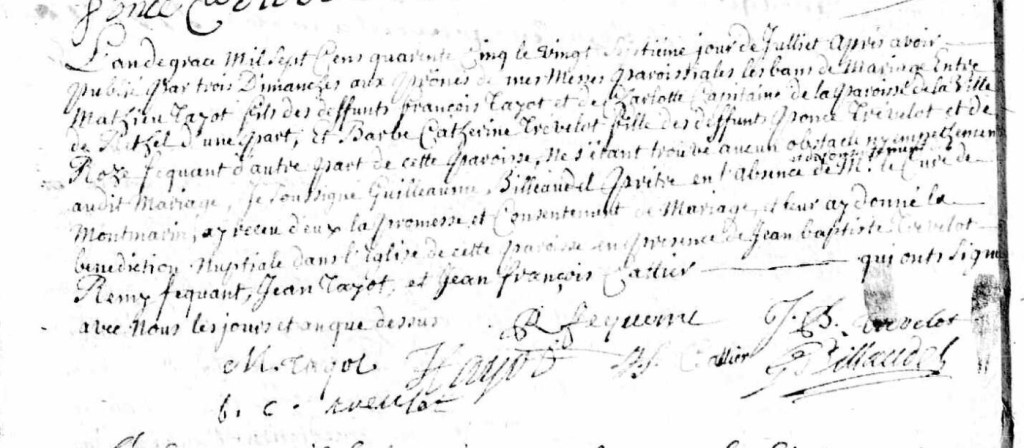 L'an de grace Mil sept Cens quarente Cinq le vingt septiéme jour de Julliet Aprés avoir
publié par trois Dimanches aux prônes de mes Messes paroissiales les bans de Mariage Entre
Mathieu Tayot fils des deffunts françois Tayot et de Charlotte Capitaine de la paroisse de la Ville
de Rethel d'une part, et Barbe Catherine Trévelot fille des deffunts ponce Trévelot et de
Roze fequant d'autre part de cette paroisse, Ne s'étant trouvé aucun obstacle ny empechement
audit Mariage, Je soussigné Guilleaume Billeaudel prêtre en l'absence de Mr. le Curé de
Montmarin, ay receu d'eux la promesse et Consentement de Mariage, et leur ay donné la
benediction Nuptiale dans l'Eglise de cette paroisse en presence de Jean baptiste Trevelot
Remy fequant, Jean Tayot, et Jean françois Callier qui onts signé
avec Nous les jours et an que dessus
R fequant J. B. trevelot
M Tayot J Tayot J f Callier G Billaudel
b. c. trevelot